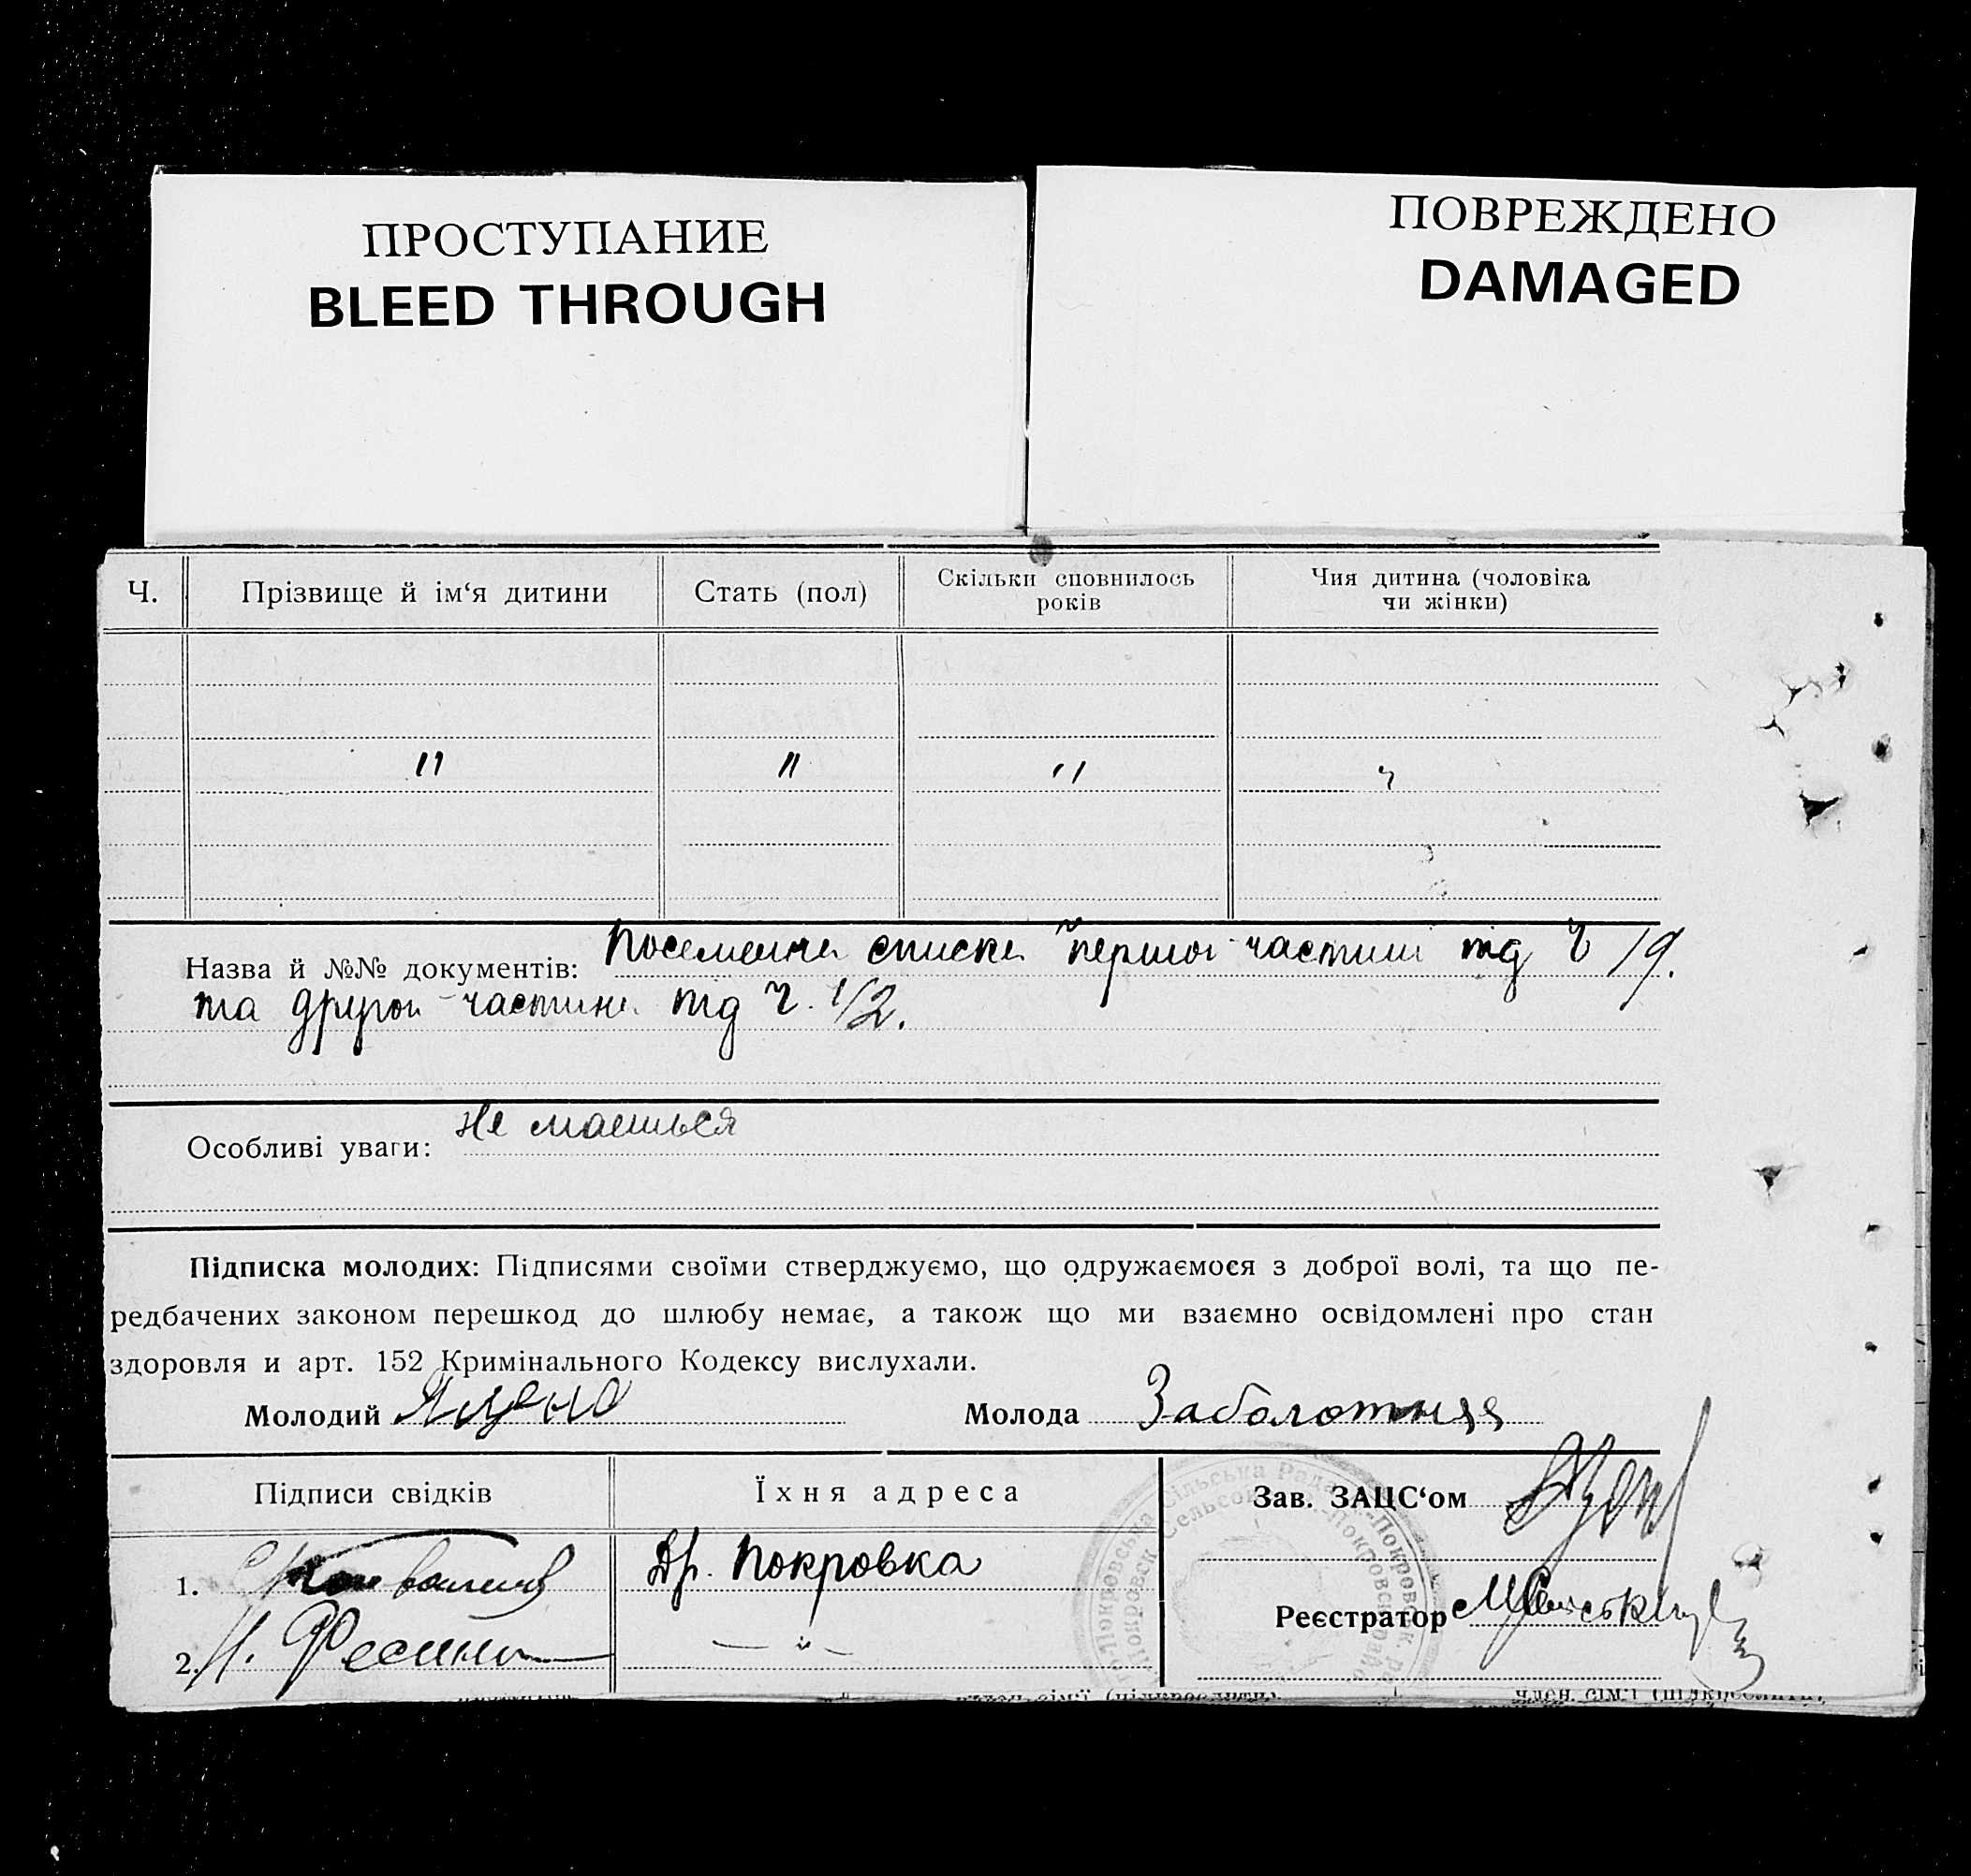 ПРОСТУПАНИЕ
BLEED THROUGH
ПОВРЕЖДЕНО
DAMAGED
Ч. Прізвище й ім‘я дитини Стать (пол) Скільки сповнилось років Чия дитина (чоловіка чи жінки)
" " " "
Назва й №№ документів: Посемейни списки першої частини під Ч 19.
та другої частини під Ч. 1/2.
Особливі уваги: Не маеться
Підписка молодих: Підписями своїми стверджуємо, що одружаємося з доброї волі, та що пе-
редбачених законом перешкод до шлюбу немає, а також що ми взаємно освідомлені про стан
здоровля и арт. 152 Кримінального Кодексу вислухали.
Молодий Яцено Молода Заболотня
Підписи свідків Їхня адреса Зав. ЗАЦС‘ом
1. Др. Покровка
2. Н. Фесин — " — Реєстратор
Сільська Рада